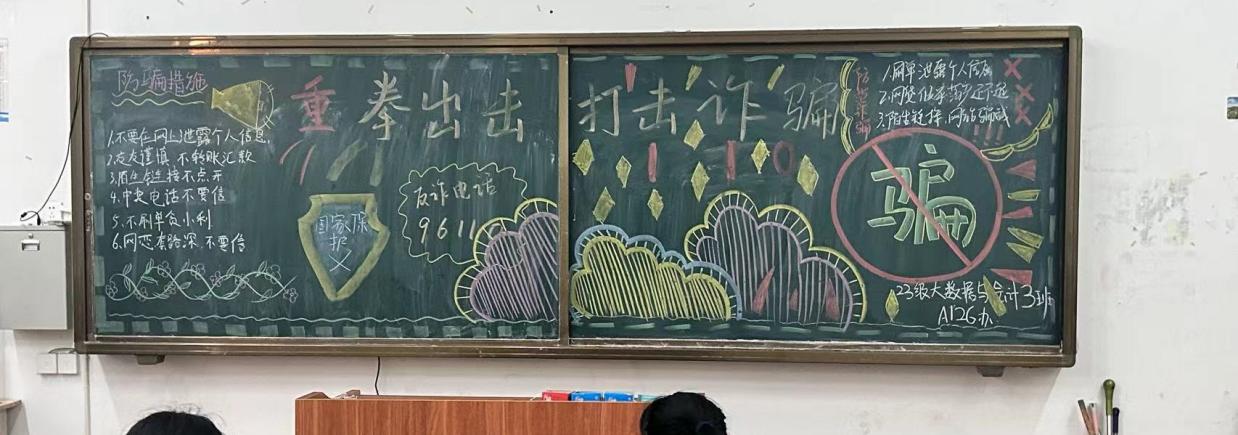 防骗措施
重拳出击 打击诈骗
1.不要在网上泄露个人信息,
2.交友谨慎 不转账汇款
3.陌生链接不点开
4.中奖电话不要信
5.不刷单贪小利
6.网恋套路深 不要信
国家保
护
反诈电话
9611
防
诈骗
1.刷单泄露个人信息
2.网贷
3.陌生链接,网络骗贼
骗
23级大数据与会计3班
A126办